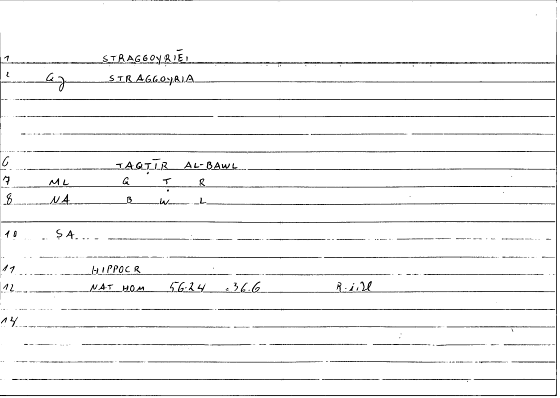 1 STRAGGOYRIĒI
2 G STRAGGOYRIA
6 TAQṬĪR AL-BAWL
7 ML Q Ṭ R
8 NA B W L
10 SA
11 HIPPOCR
12 NAT HOM 56.24 .36.6
14